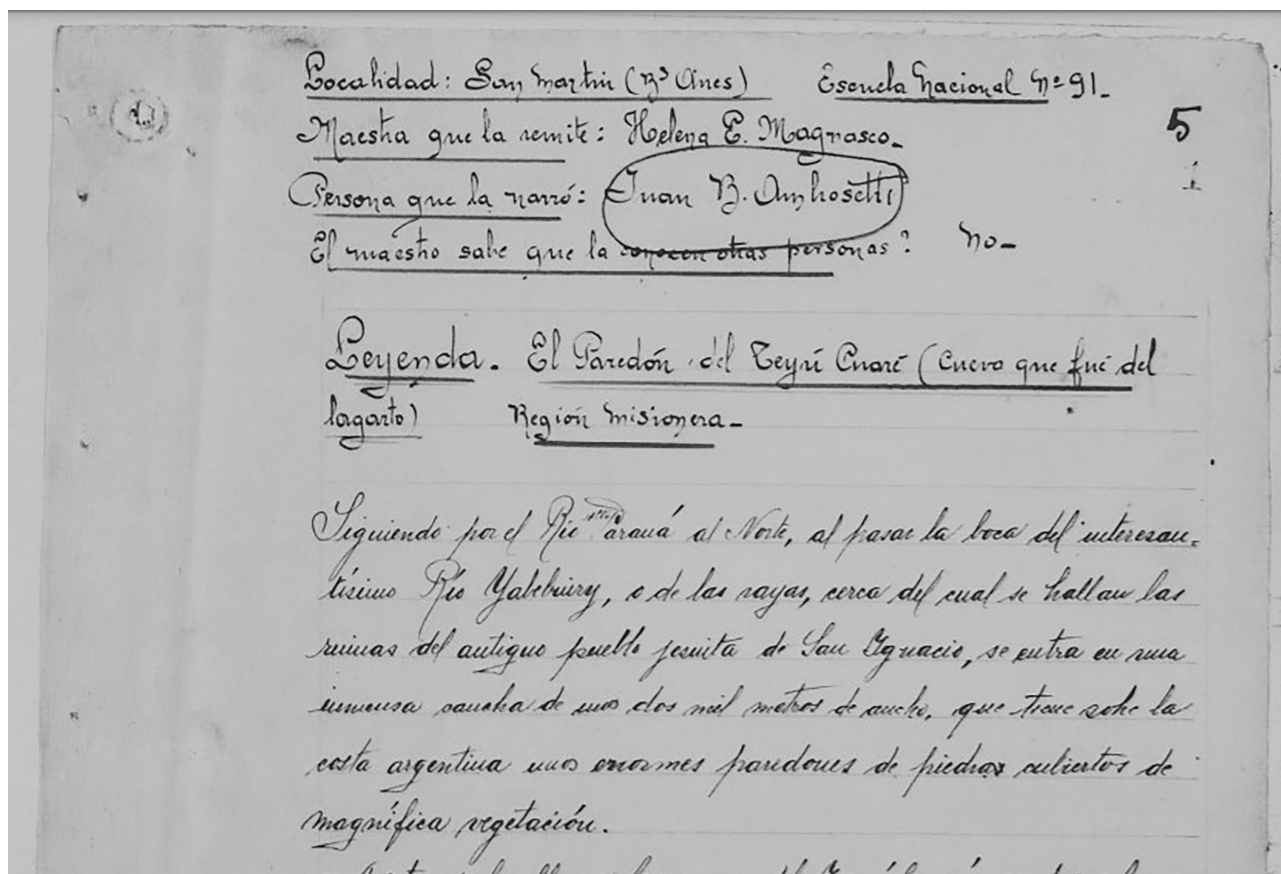 Localidad: San Martín (Bs Aires) Escuela Nacional Nº 91.
5
Maestra que la remite: Helena E. Magrasco.
1
Persona que la narró: Juan B. Ambrosetti
El maestro sabe que la conocen otras personas? No.
Leyenda. El Paredón del Teyú Cuaré (Cueva que fué del
lagarto) Región Misionera.
Siguiendo por el Río Paraná al Norte, al pasar la boca del interesan-
tísimo Río Yabebuiry, o de las rayas, cerca del cual se hallan las
ruinas del antiguo pueblo jesuita de San Ignacio, se entra en una
inmensa cancha de unos dos mil metros de ancho, que tiene sobre la
costa argentina unos enormes paredones de piedras cubiertos de
magnífica vegetación.